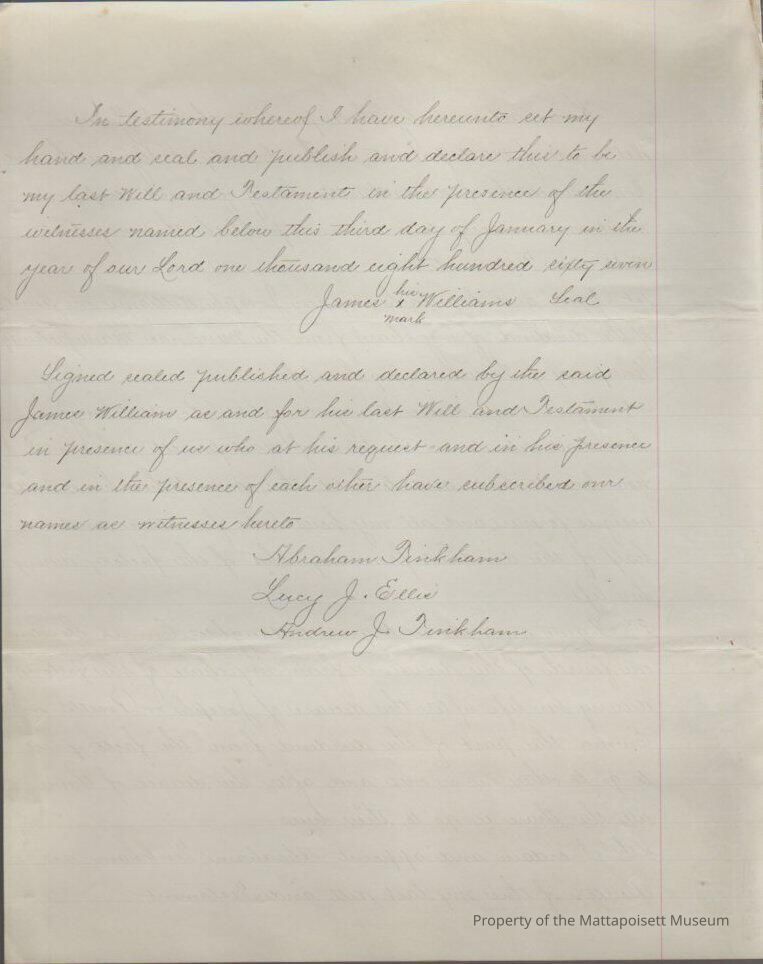 In testimony whereof I have hereunto set my
hand and seal and publish and declare this to be
my last Will and Testament in the presence of the
witnesses named below this third day of January in the
year of our Lord one thousand eight hundred sixty seven
his
James x Williams Seal
mark
Signed sealed published and declared by the said
James William as and for his last Will and Testament
in presence of us who at his request and in his presence
and in the presence of each other have subscribed our
names as witnesses hereto
Abraham Tinkham
Lucy J. Ellis
Andrew J Tinkham
Property of the Mattapoisett Museum